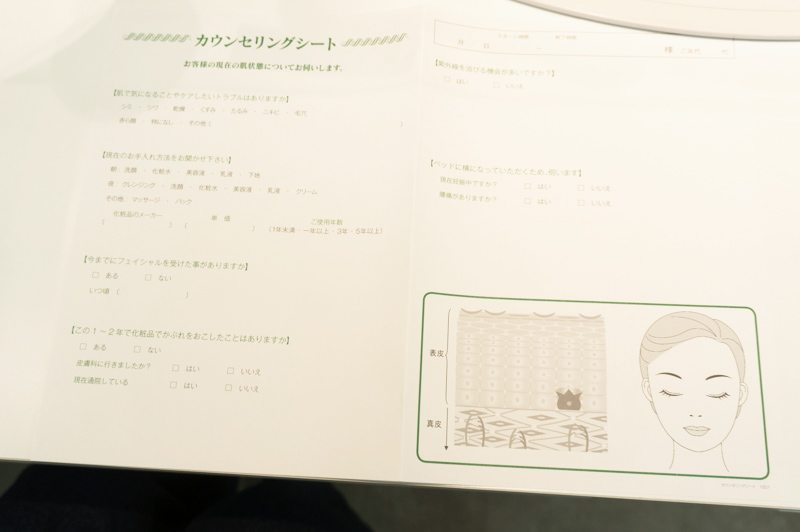 カウンセリングシート
お客様の現在の肌状態についてお伺いします。
【肌で気になることやケアしたいトラブルはありますか】
シミ ・ シワ ・ 乾燥 ・ くすみ ・ たるみ ・ ニキビ ・ 毛穴
赤ら顔 ・ 特になし ・ その他 ( )
【現在のお手入れ方法をお聞かせ下さい】
朝: 洗顔 ・ 化粧水 ・ 美容液 ・ 乳液 ・ 下地
夜: クレンジング ・ 洗顔 ・ 化粧水 ・ 美容液 ・ 乳液 ・ クリーム
その他: マッサージ ・ パック
化粧品のメーカー 単価 ご使用年数
( ) ( ) (1年未満・一年以上・3年・5年以上)
【今までにフェイシャルを受けた事がありますか】
□ ある □ ない
いつ頃 ( )
【この1~2年で化粧品でかぶれをおこしたことはありますか】
□ ある □ ない
皮膚科に行きましたか? □ はい □ いいえ
現在通院している □ はい □ いいえ
月 日 ~ 様
【紫外線を浴びる機会が多いですか?】
□ はい □ いいえ
【ベッドに横になっていただくため、伺います】
現在妊娠中ですか? □ はい □ いいえ
腰痛がありますか? □ はい □ いいえ
表皮
真皮